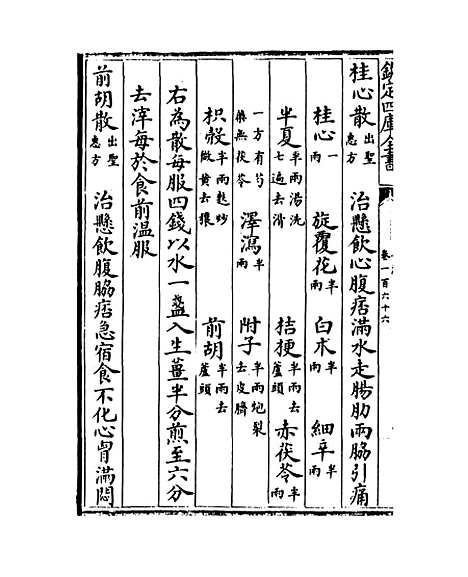 欽定四庫全書
卷一百六十六
桂心散出聖惠方 治懸飲心腹痞滿水走腸肋兩脇引痛
桂心一兩 旋覆花半兩 白朮半兩 細辛半兩
半夏半兩湯洗七遍去滑 桔梗半兩去蘆頭 赤茯苓半兩
一方有芍藥無茯苓 澤瀉半兩 附子半兩炮裂去皮臍
枳殼半兩麩炒微黄去穰 前胡半兩去蘆頭
右為散每服四錢以水一盞入生薑半分煎至六分
去滓每於食前温服
前胡散出聖惠方 治懸飲腹脇痞急宿食不化心胷滿悶